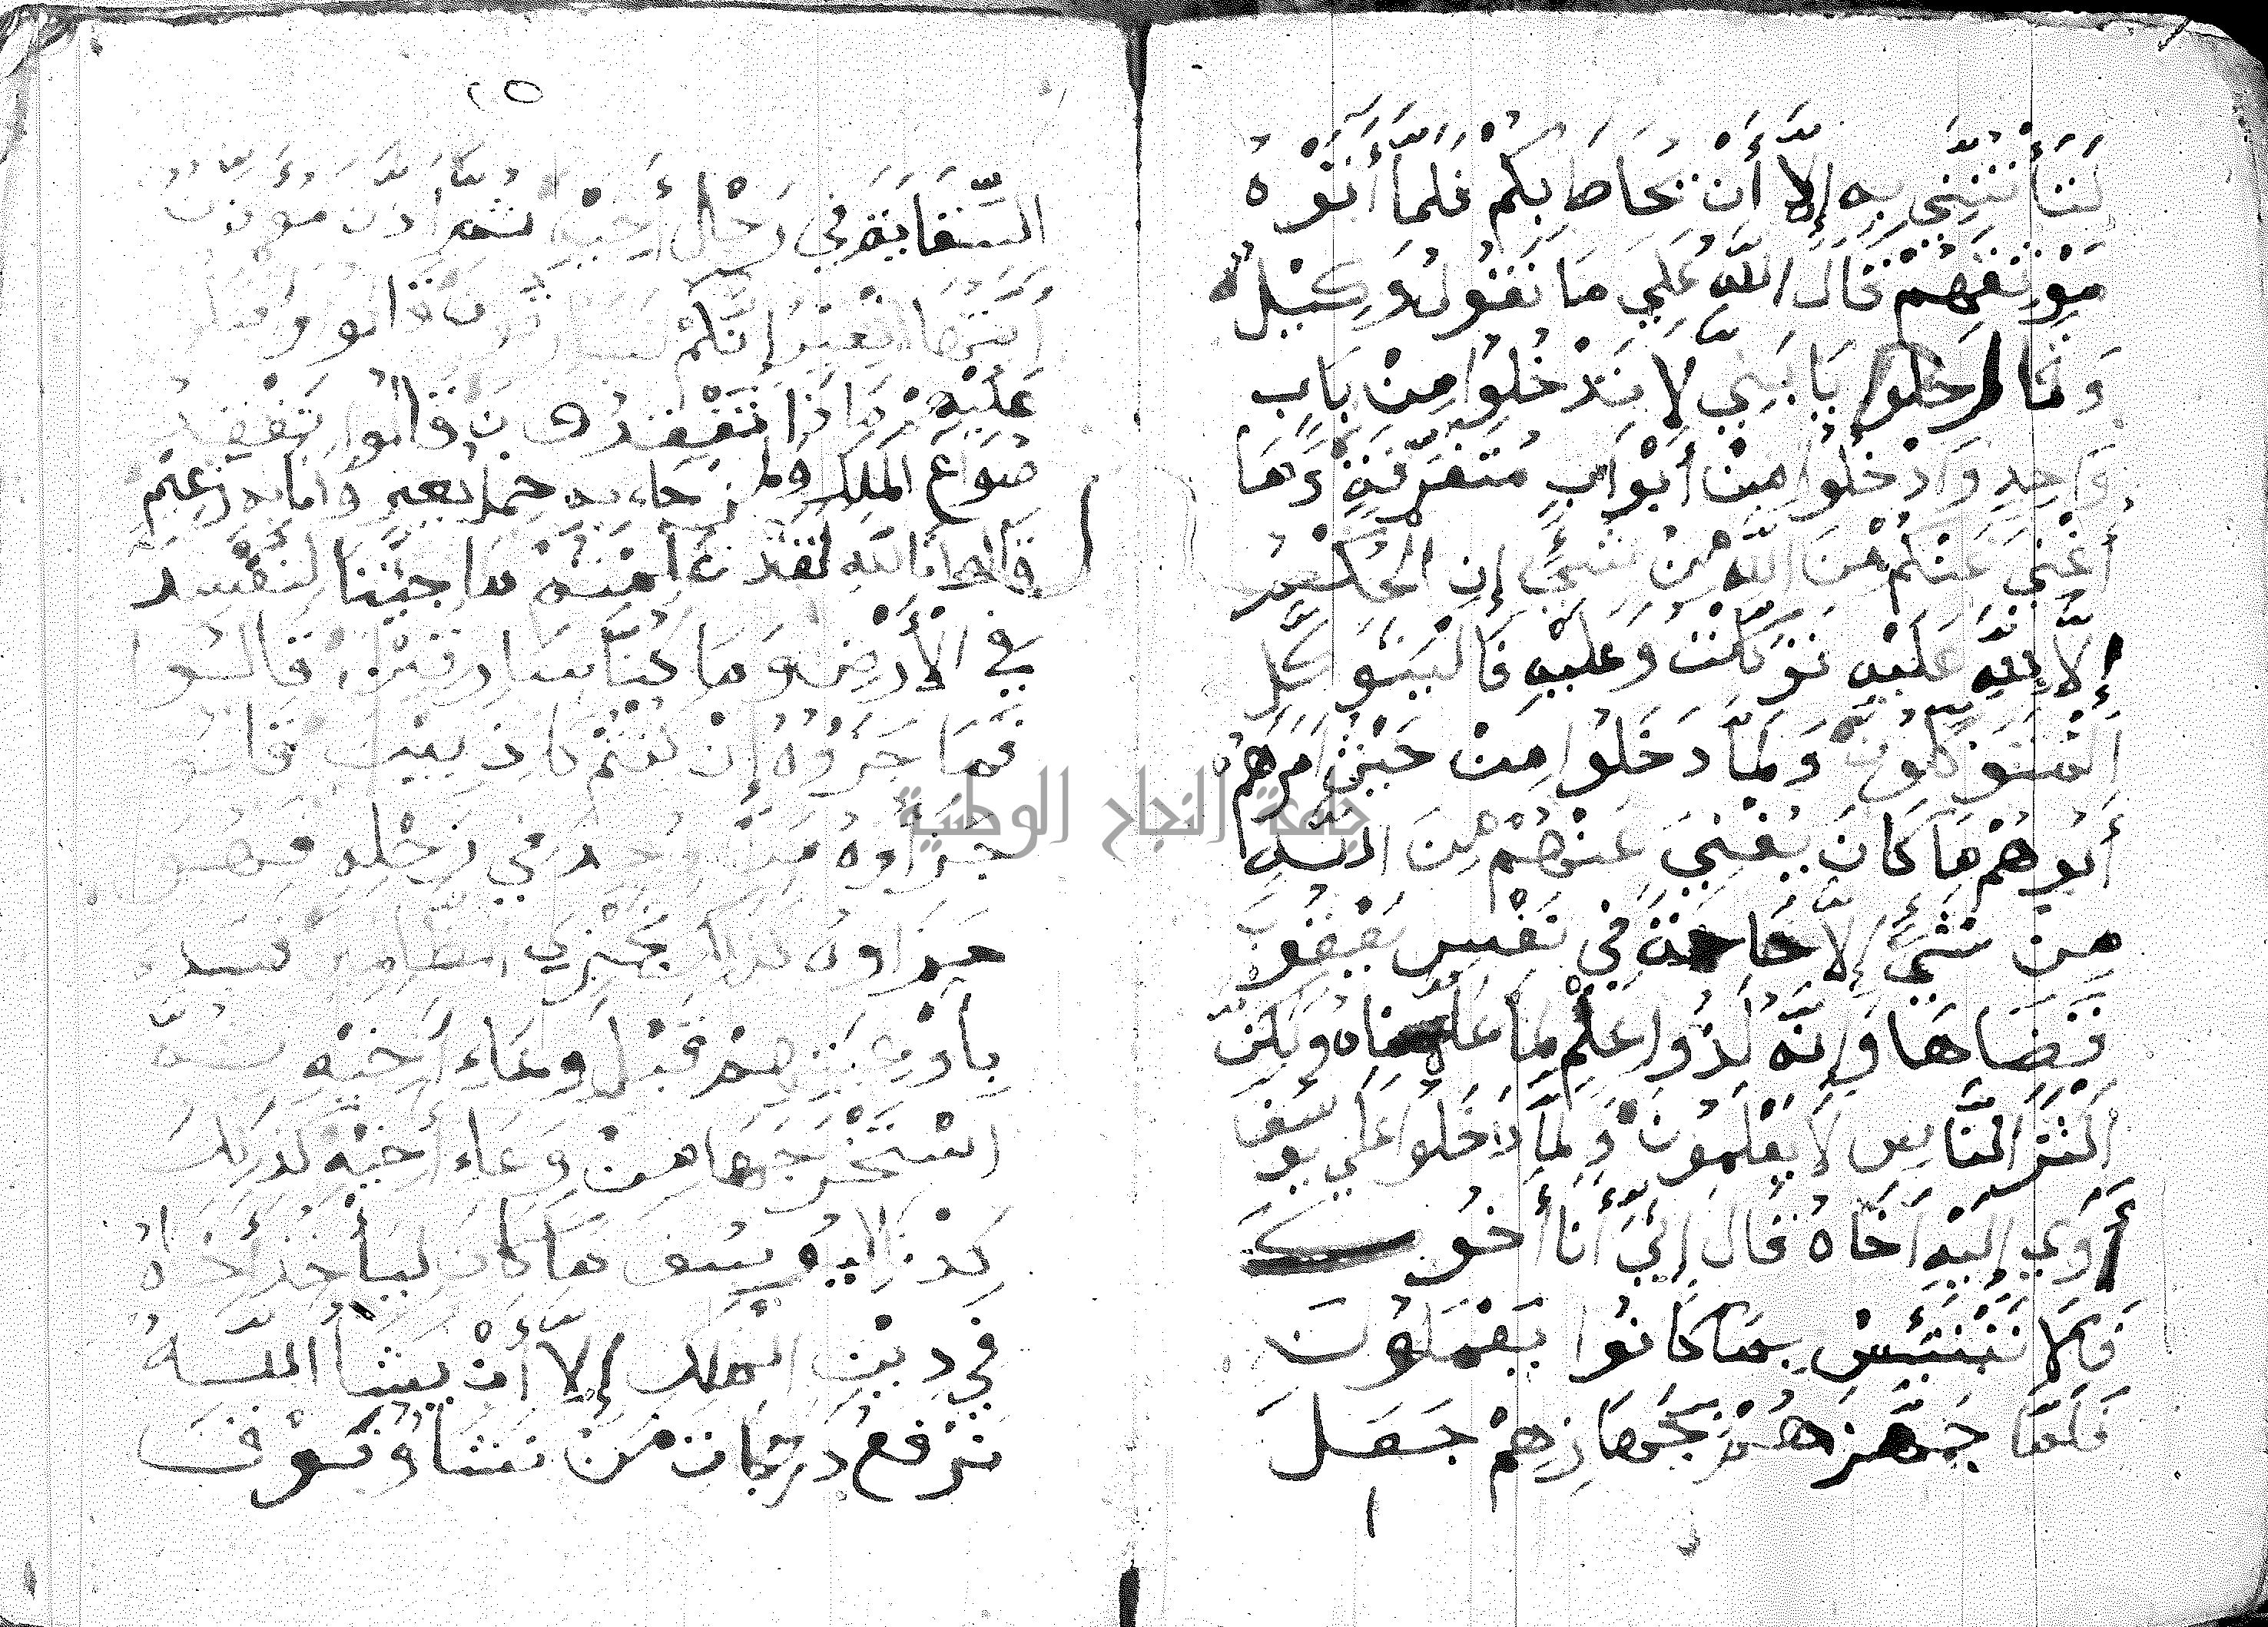 لَتَأْتُنَّنِي بِهِ إِلَّا أَنْ يُحَاطَ بِكُمْ فَلَمَّا أَتَوْهُ
مَوْثِقَهُمْ قَالَ اللَّهُ عَلَى مَا نَقُولُ وَكِيلٌ
وَقَالَ ادخلوا يَا بَنِيَّ لَا تَدْخُلُوا مِنْ بَابٍ
وَاحِدٍ وَادْخُلُوا مِنْ أَبْوَابٍ مُتَفَرِّقَةٍ وَمَا
أُغْنِي عَنْكُمْ مِنَ اللَّهِ مِنْ شَيْءٍ إِنِ الْحُكْمُ
إِلَّا لِلَّهِ عَلَيْهِ تَوَكَّلْتُ وَعَلَيْهِ فَالْيَتَوَكَّلِ
الْمُتَوَكِّلُونَ وَلَمَّا دَخَلُوا مِنْ حَيْثُ أَمَرَهُمْ
أَبُوهُمْ مَا كَانَ يُغْنِي عَنْهُمْ مِنَ اللَّهِ
مِنْ شَيْءٍ إِلَّا حَاجَةً فِي نَفْسِ يَعْقُوبَ
قَضَاهَا وَإِنَّهُ لَذُوا عِلْمٍ لِمَا عَلَّمْنَاهُ وَلَكِنَّ
أَكْثَرَ النَّاسِ لَا يَعْلَمُونَ وَلَمَّا دَخَلُوا عَلَى يُوسُفَ
أَوَى إِلَيْهِ أَخَاهُ قَالَ إِنِّي أَنَا أَخُوكَ
فَلَا تَبْتَئِسْ بِمَا كَانُوا يَعْمَلُونَ
فَلَمَّا جَهَّزَهُمْ بِجَهَازِهِمْ جَعَلَ
٢٥
السِّقَايَةَ فِي رَحْلِ أَخِيهِ ثُمَّ أَذَّنَ مُؤَذِّنٌ
أَيَّتُهَا الْعِيرُ إِنَّكُمْ لَسَارِقُونَ قَالُوا وَأَقْبَلُوا
عَلَيْهِمْ مَاذَا تَفْقِدُونَ قَالُوا نَفْقِدُ
صُوَاعَ الْمَلِكِ وَلِمَنْ جَاءَ بِهِ حِمْلُ بَعِيرٍ وَأَنَا بِهِ زَعِيمٌ
قَالُوا تَاللَّهِ لَقَدْ عَلِمْتُمْ مَا جِئْنَا لِنُفْسِدَ
فِي الْأَرْضِ وَمَا كُنَّا سَارِقِينَ قَالُوا
فَمَا جَزَاؤُهُ إِنْ كُنْتُمْ كَاذِبِينَ قَالُوا
جَزَاؤُهُ مَنْ وُجِدَ فِي رَحْلِهِ فَهُوَ
جَزَاؤُهُ كَذَلِكَ نَجْزِي الظَّالِمِينَ فَبَدَأَ
بِأَوْعِيَتِهِمْ قَبْلَ وِعَاءِ أَخِيهِ ثُمَّ
اسْتَخْرَجَهَا مِنْ وِعَاءِ أَخِيهِ كَذَلِكَ
كِدْنَا لِيُوسُفَ مَا كَانَ لِيَأْخُذَ أَخَاهُ
فِي دِينِ الْمَلِكِ إِلَّا أَنْ يَشَاءَ اللَّهُ
نَرْفَعُ دَرَجَاتٍ مَنْ نَشَاءُ وَفَوْقَ
جامعة النجاح الوطنية